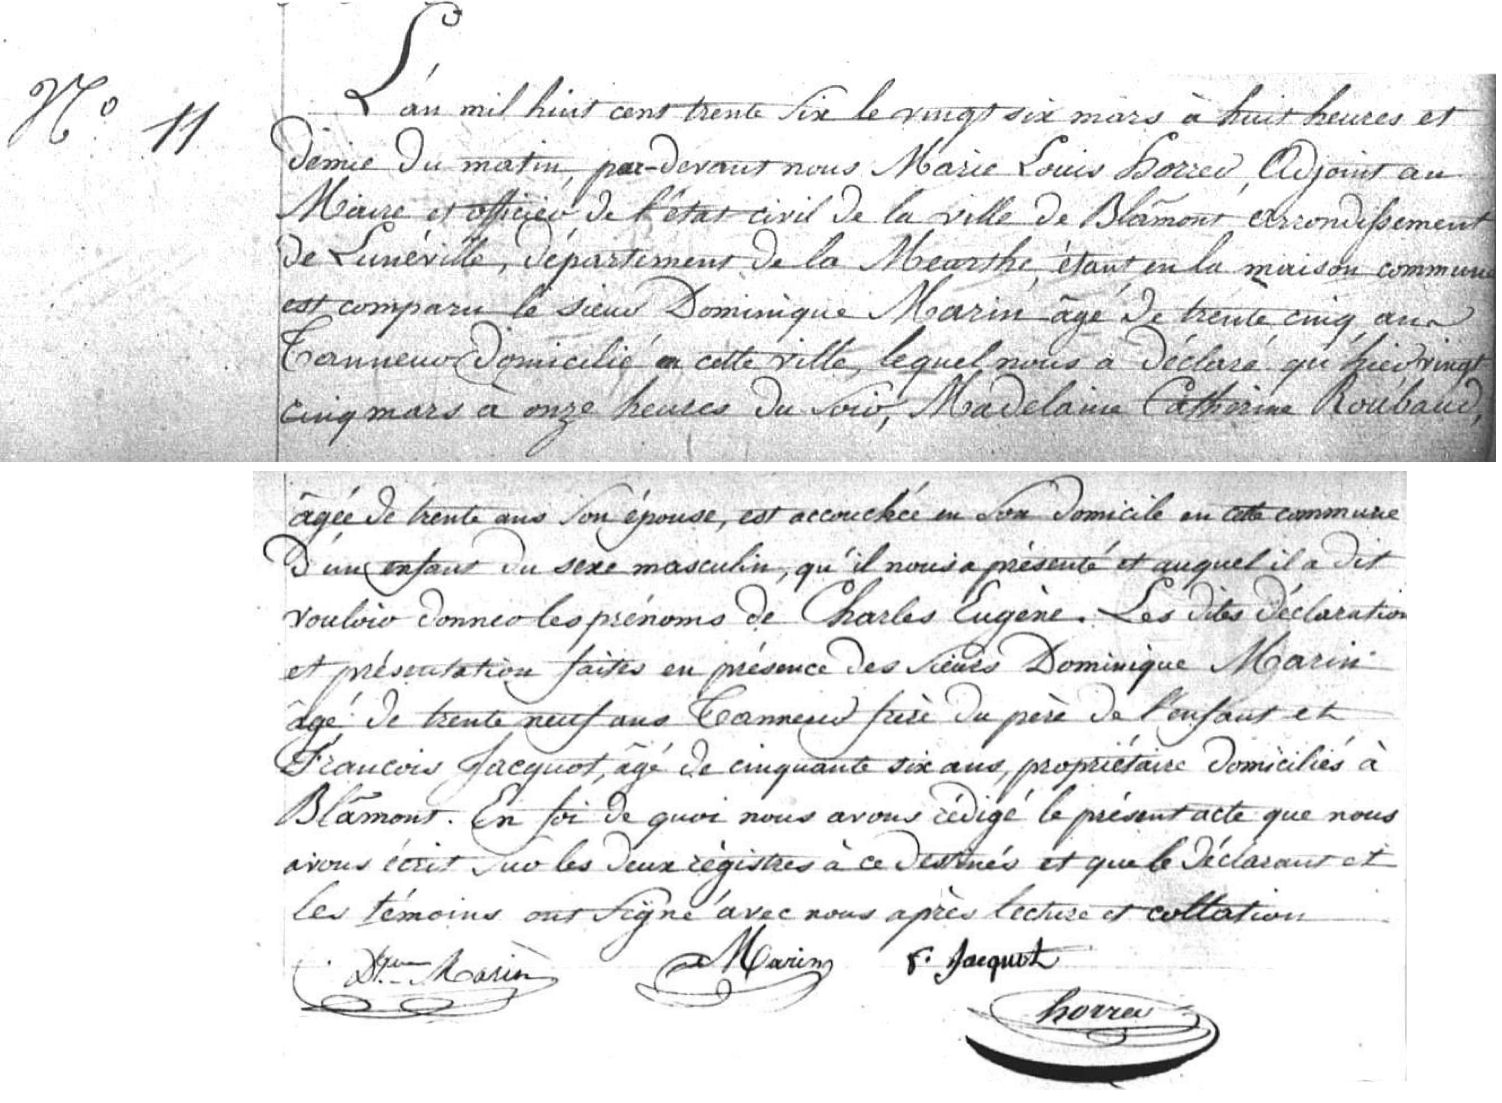 N.° 11
L'an mil huit cent trente six le vingt six mars à huit heures et
demie du matin, par-devant nous Marie Louis horrer, Adjoint au
Maire et officier de l'état civil de la ville de Blâmont arrondissement
de Lunéville, département de la Meurthe, étant en la maison commune
est comparu le sieur Dominique Marin âgé de trente cinq ans
Tanneur domicilié en cette ville, lequel nous a déclaré qu'hier vingt
cinq mars à onze heures du soir, Madelaine Catherine Roúbaud,
âgée de trente ans son épouse, est accouchée en son domicile en cette commune
d'un enfant du sexe masculin, qu'il nous a présenté et auquel il a dit
vouloir donner les prénoms de Charles Eugène. Les dites déclaration
et présentation faites en présence des sieurs Dominique Marin
âgé de trente neuf ans Tanneur frère du père de l'enfant et
Francois Jacquot, âgé de cinquante six ans, propriétaire domiciliés à
Blâmont. En foi de quoi nous avons rédigé le présent acte que nous
avons écrit sur les deux régistres à ce destinés et que le déclarant et
les témoins ont signé avec nous après lecture et collation
Dque Marin Marin f. Jacquot
horrer